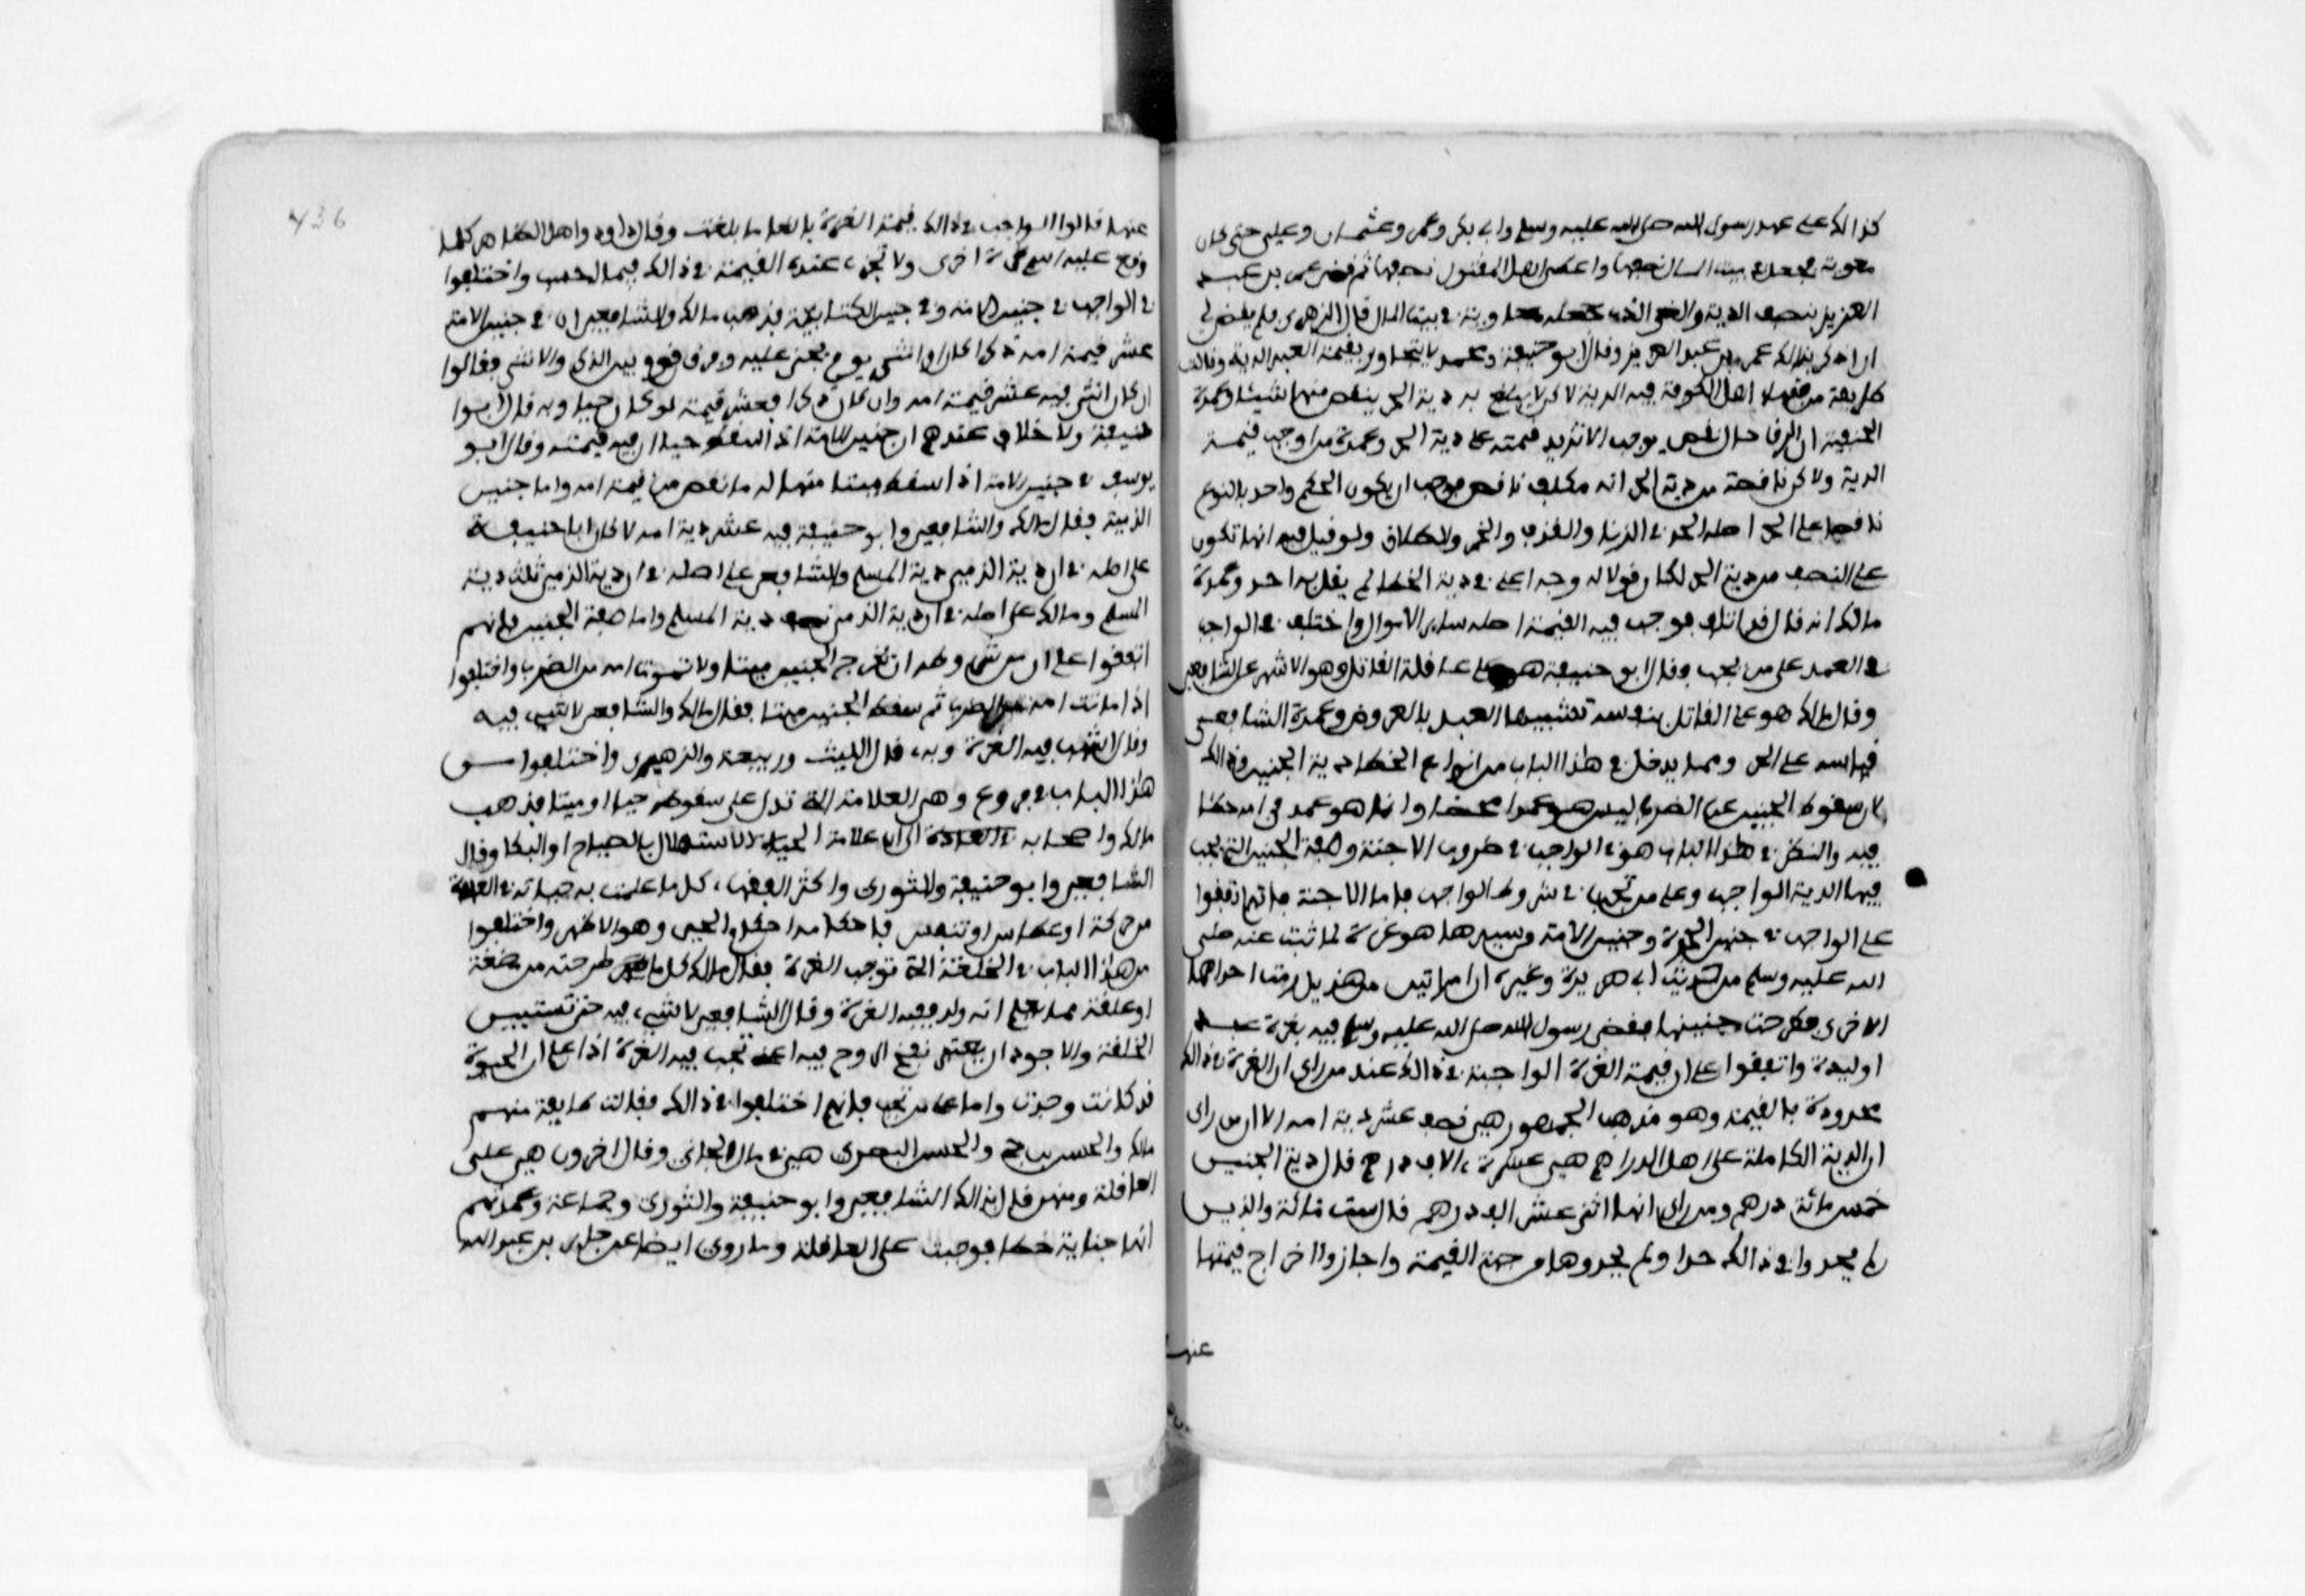 كذالك على عهد رسول الله صلى الله عليه وسلم وابي بكر وعمر وعثمان وعلي حتى كان
معوية فجعل في بيت المال نصفها واعطى اهل المقتول نصفها ثم قضى عمر بن عبد
العزيز بنصف الدية والغى الذي جعله معاوية في بيت المال قال الزهري فلم يقض لي
ان اذكر بذالك عمر بن عبد العزيز وقال ابو حنيفة ومحمد لا يتجاوز بقيمة العبد الدية وقالت
طايفة من فقهاء اهل الكوفة فيه الدية لاكن لا يبلغ به دية الحر ينقص منها شيئا وعمدة
الحنفية ان الرق حال نقص يوجب الا تزيد قيمته على دية الحر وعمدة من اوجب فيه
الدية ولاكن ناقصة من دية الحر انه مكلف ناقص فوجب ان يكون الحكم واحد بالنوع
ناقصا على الحر اصله الحد في الزنا والقذف والخمر والطلاق ولو قيل فيه انها تكون
على النصف من دية الحر لكان قولا له وجه اعني في دية الخطا لم يقل به احد وعمدة
مالك انه قال قد اتلف فوجب فيه القيمة اصله ساير الاموال واختلف في الواجب
في العمد على من يجب وقال ابو حنيفة هو على عاقلة القاتل وهو الاشهر عن الشافعي
وقال مالك هو على القاتل بنفسه تشبيها العبد بالعروض وعمدة الشافعي
قياسه على الحر ومما يدخل في هذا الباب من انواع الخطا دية الجنين وذالك
لان سقوط الجنين عن الضرب ليس هو عمدا محضا وانما هو عمد في امه خطا
فيه والنظر في هذا الباب هو في الواجب في ضروب الاجنة وصفة الجنين التي يجب
فيها الدية الواجب وعلى من تجب في شروط الواجب فاما الاجنة فانهم اتفقوا
على الواجب في جنين الحرة وجنين الامة من سيدها هو غرة لما ثبت عنه صلى
الله عليه وسلم من حديث ابي هريرة وغيره ان امراتين من هذيل رمت احداهما
الاخرى فطرحت جنينها فقضى رسول الله صلى الله عليه وسلم فيه بغرة عبد
او وليدة واتفقوا على ان قيمة الغرة الواجبة في ذالك عند من راى ان الغرة في ذالك
محدودة بالقيمة وهو مذهب الجمهور هي نصف عشر دية امه الا ان من راى
ان الدية الكاملة على اهل الدراهم هي عشرة الاف درهم قال دية الجنين
خمس مائة درهم ومن راى انها اثنى عشر الف درهم قال ست مائة والذين
لم يحدوا في ذالك حدا ولم يحدوها من جهة القيمة واجازوا اخراج قيمتها
عنها
436
عنها قالوا الواجب في ذالك قيمة الغرة بالغا ما بلغت وقال داوود واهل الظاهر كلما
وقع عليه اسم غرة اجزى ولا تجزء عنده القيمة في ذالك فيما احسب واختلفوا
في الواجب في جنين الامة وفي جنين الكتابية فذهب مالك والشافعي ان في جنين الامة
عشر قيمة امه ذكرا كان او انثى يوم يجنى عليه وفرق قوم بين الذكر والانثى فقالوا
ان كان انثى فيه عشر قيمة امه وان كان ذكرا فعشر قيمته لو كان حيا وبه قال ابو
حنيفة ولا خلاف عندهم ان جنين الامة اذا سقط حيا ان فيه قيمته وقال ابو
يوسف في جنين الامة اذا سقط ميتا منها له ما نقص من قيمة امه واما جنين
الذمية فقال مالك والشافعي وابو حنيفة فيه عشر دية امه لاكان ابا حنيفة
على اصله في ان دية الذمي دية المسلم والشافعي على اصله في ان دية الذمي ثلث دية
المسلم ومالك على اصله في ان دية الذمي نصف دية المسلم واما صفة الجنين فانهم
اتفقوا على ان من شروطه ان تخرج الجنين ميتا ولا تموت امه من الضرب واختلفوا
اذا ماتت امه من الضرب ثم سقط الجنين ميتا فقال مالك والشافعي لا شيء فيه
وقال اشهب فيه الغرة وبه قال الليث وربيعة والزهري واختلفوا من
هذا الباب في فروع وهي العلامة التي تدل على سقوطه حيا او ميتا فذهب
مالك واصحابه الى ان علامة الحياة الاستهلال بالصياح او البكا وقال
الشافعي وابو حنيفة والثوري واكثر الفقهاء كل ما علمت به حياته في العادة
من حركة او عطاس او تنفس فاحكامه احكام الحي وهو الاظهر واختلفوا
من هذا الباب في الخلقة التي توجب الغرة فقال مالك كل ما طرحته من مضغة
او علقة مما يعلم انه ولد ففيه الغرة وقال الشافعي لا شيء فيه حتى تستبين
الخلقة والاجود ان يعتبر نفخ الروح فيه اعني تجب فيه الغرة اذا علم ان الحيوة
قد كانت وجدت واما على من تجب فانهم اختلفوا في ذالك فقالت طايفة منهم
مالك والحسن بن حي والحسن البصري هي في مال الجاني وقال اخرون هي على
العاقلة وممن قال بذالك الشافعي وابو حنيفة والثوري وجماعة وعمدتهم
انها جناية خطا فوجبت على العاقلة وما روي ايضا عن جابر بن عبد الله